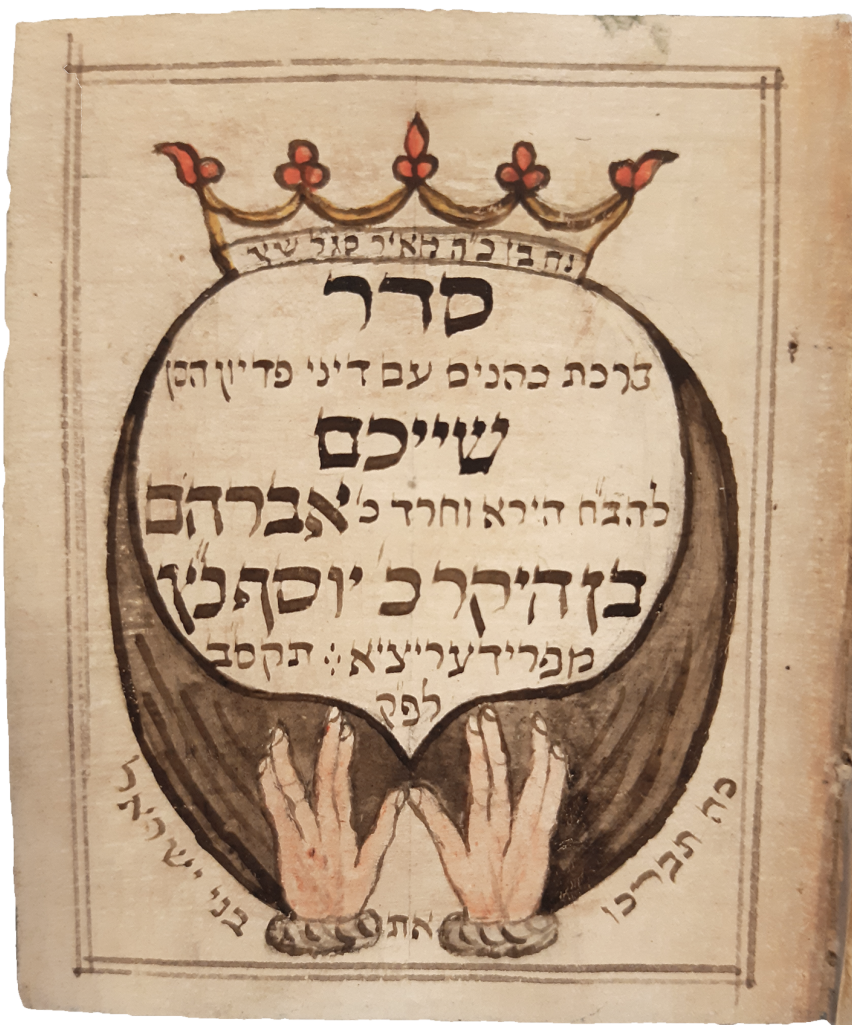 נח בן כ"ה מאיר סגל שי"ץ
סדר
ברכת כהנים עם דיני פדיון הבן
שייכם
להב"ח הירא וחרד כ' אברהם
בן היקר כ' יוסף כ"ץ
מפרידעריציא תקסב
לפק
כה תברכו
את
בני ישראל